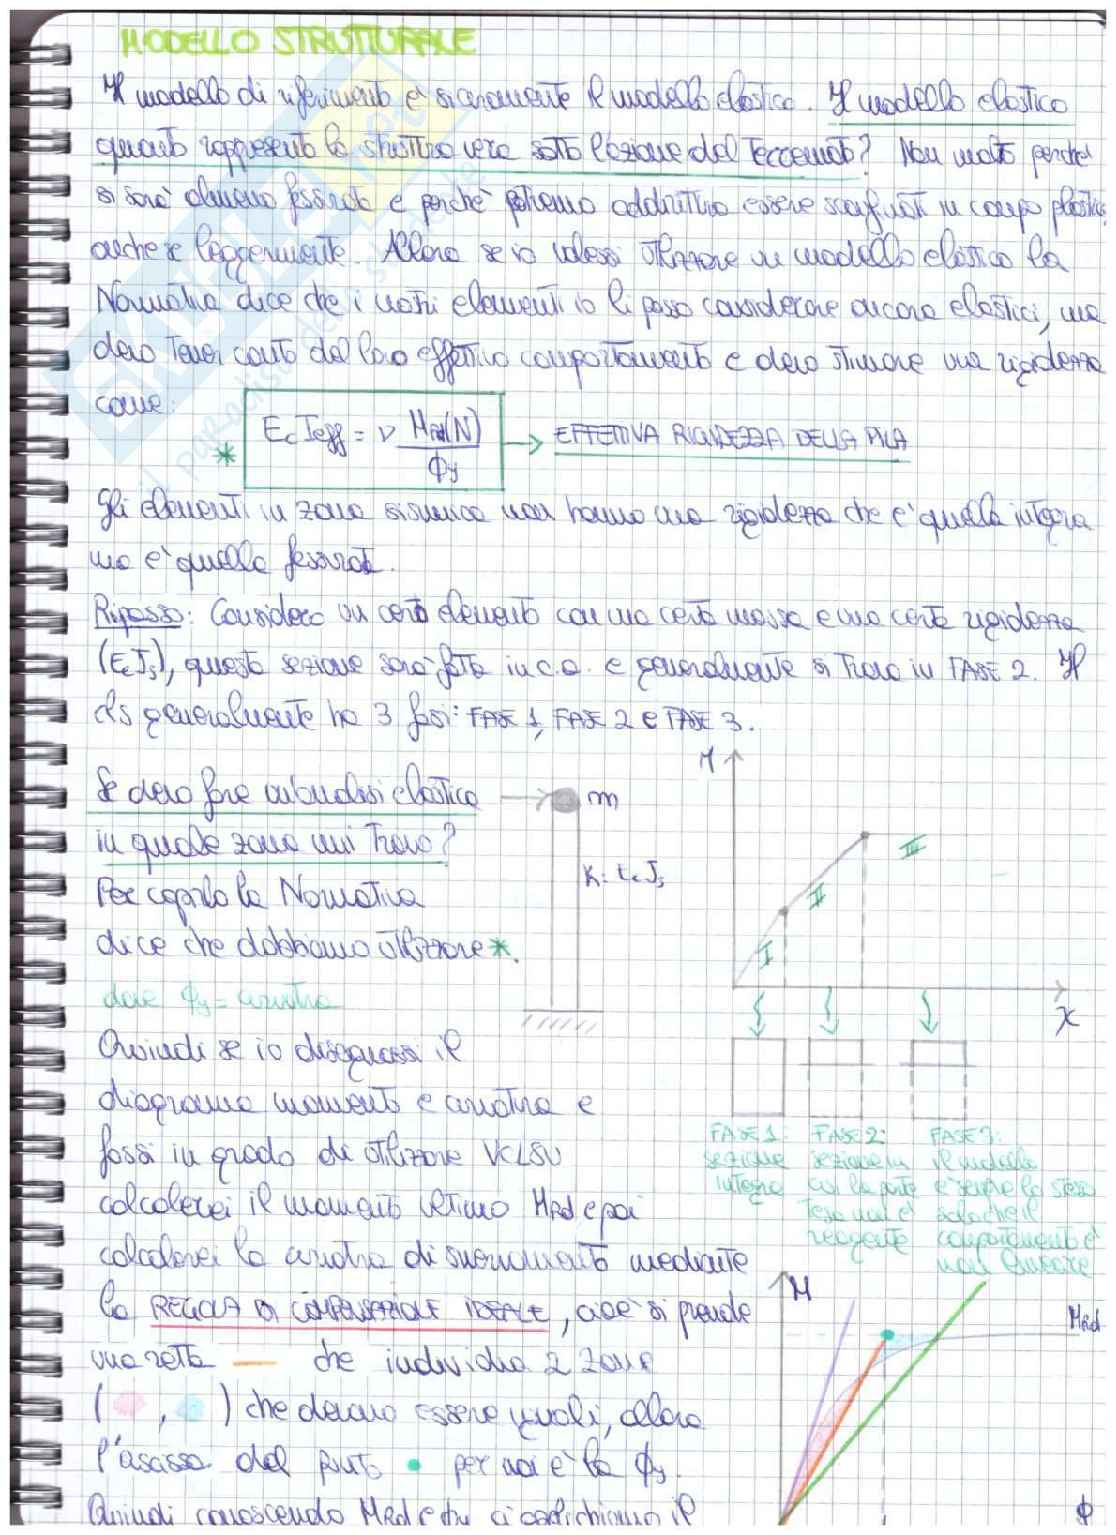 MODELLO STRUTTURALE
Il modello di riferimento è sicuramente il modello elastico. Il modello elastico
quanto rappresenta la struttura vera sotto l'azione del terremoto? Non molto perché
si sarà almeno fessurata e perché potremo addirittura essere in campo plastico,
anche se leggermente. Allora se io volessi utilizzare un modello elastico la
Normativa dice che i nostri elementi io li posso considerare ancora elastici, ma
devo tener conto del loro effettivo comportamento e devo stimare una rigidezza
come:
* EcJeff = ν MRd(N) / ϕy → EFFETTIVA RIGIDEZZA DELLA PILA
Gli elementi in zona sismica non hanno una rigidezza che è quella integra
ma è quella fessurata.
Ripasso: Considero un certo elemento con una certa massa e una certa rigidezza
(EcJs), questa sezione sarà fatta in c.a. e generalmente si trova in FASE 2. Il
cls generalmente ha 3 fasi: FASE 1, FASE 2 e FASE 3.
Se devo fare un'analisi elastica
in quale zona mi trovo?
Per capirlo la Normativa
dice che dobbiamo utilizzare *.
dove ϕy = curvatura
m
K: Ec Js
M
I
II
III
χ
FASE 1: sezione integra
FASE 2: sezione in cui la parte tesa non è reagente
FASE 3: il modello è sempre lo stesso solo che il comportamento è non lineare
Quindi se io disegnassi il
diagramma momento e curvatura e
fossi in grado di utilizzare VCLSU
calcolerei il momento ultimo MRd e poi
calcolerei la curvatura di snervamento mediante
la REGOLA DI COMPENSAZIONE IDEALE, cioè si prende
una retta — che individua 2 zone
( , ) che devono essere uguali, allora
l'ascissa del punto • per noi è la ϕy.
Quindi conoscendo MRd e ϕy ci calcoliamo il
M
MRd
ϕ